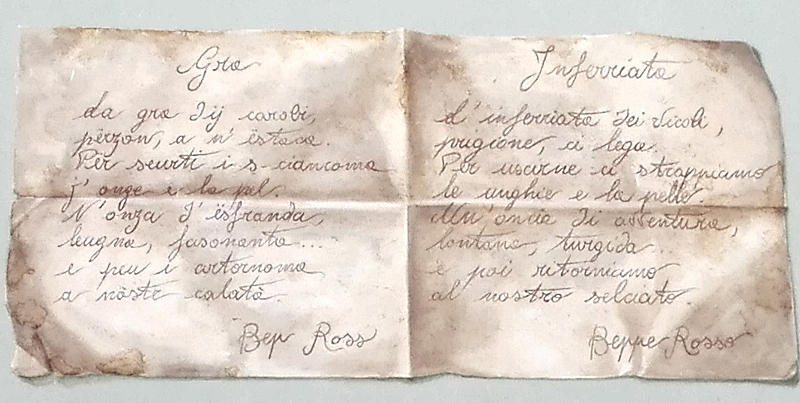 Gra
da gra dij carobi,
përzon, a n' ëstaca.
Për seurti i s-ciancoma
j' onge e la pel.
N' onza d' ësfranda,
leugna, fasonanta...
e peui i artornoma
a nòstr calatà.
Bep Ross
Inferriata
L'inferriata dei vicoli,
prigione, ci lega.
Per uscirne ci strappiamo
le unghie e la pelle.
Un'oncia di avventura,
lontana, turgida...
e poi ritorniamo
al nostro selciato.
Beppe Rosso